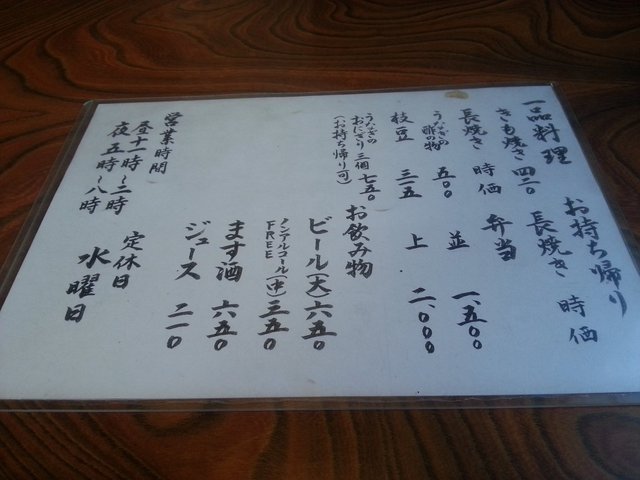 一品料理
きも焼き 四二〇
長焼き 時価
うなぎの酢の物 五〇〇
枝豆 三一五
うなぎのおにぎり 三個 七五〇
(お持ち帰り可)
お持ち帰り
長焼き 時価
弁当
並 一、五〇〇
上 二、〇〇〇
お飲み物
ビール(大) 六五〇
ノンアルコール(中) 三五〇
FREE
ます酒 六五〇
ジュース 二一〇
営業時間
昼十一時〜二時
夜五時〜八時
定休日
水曜日